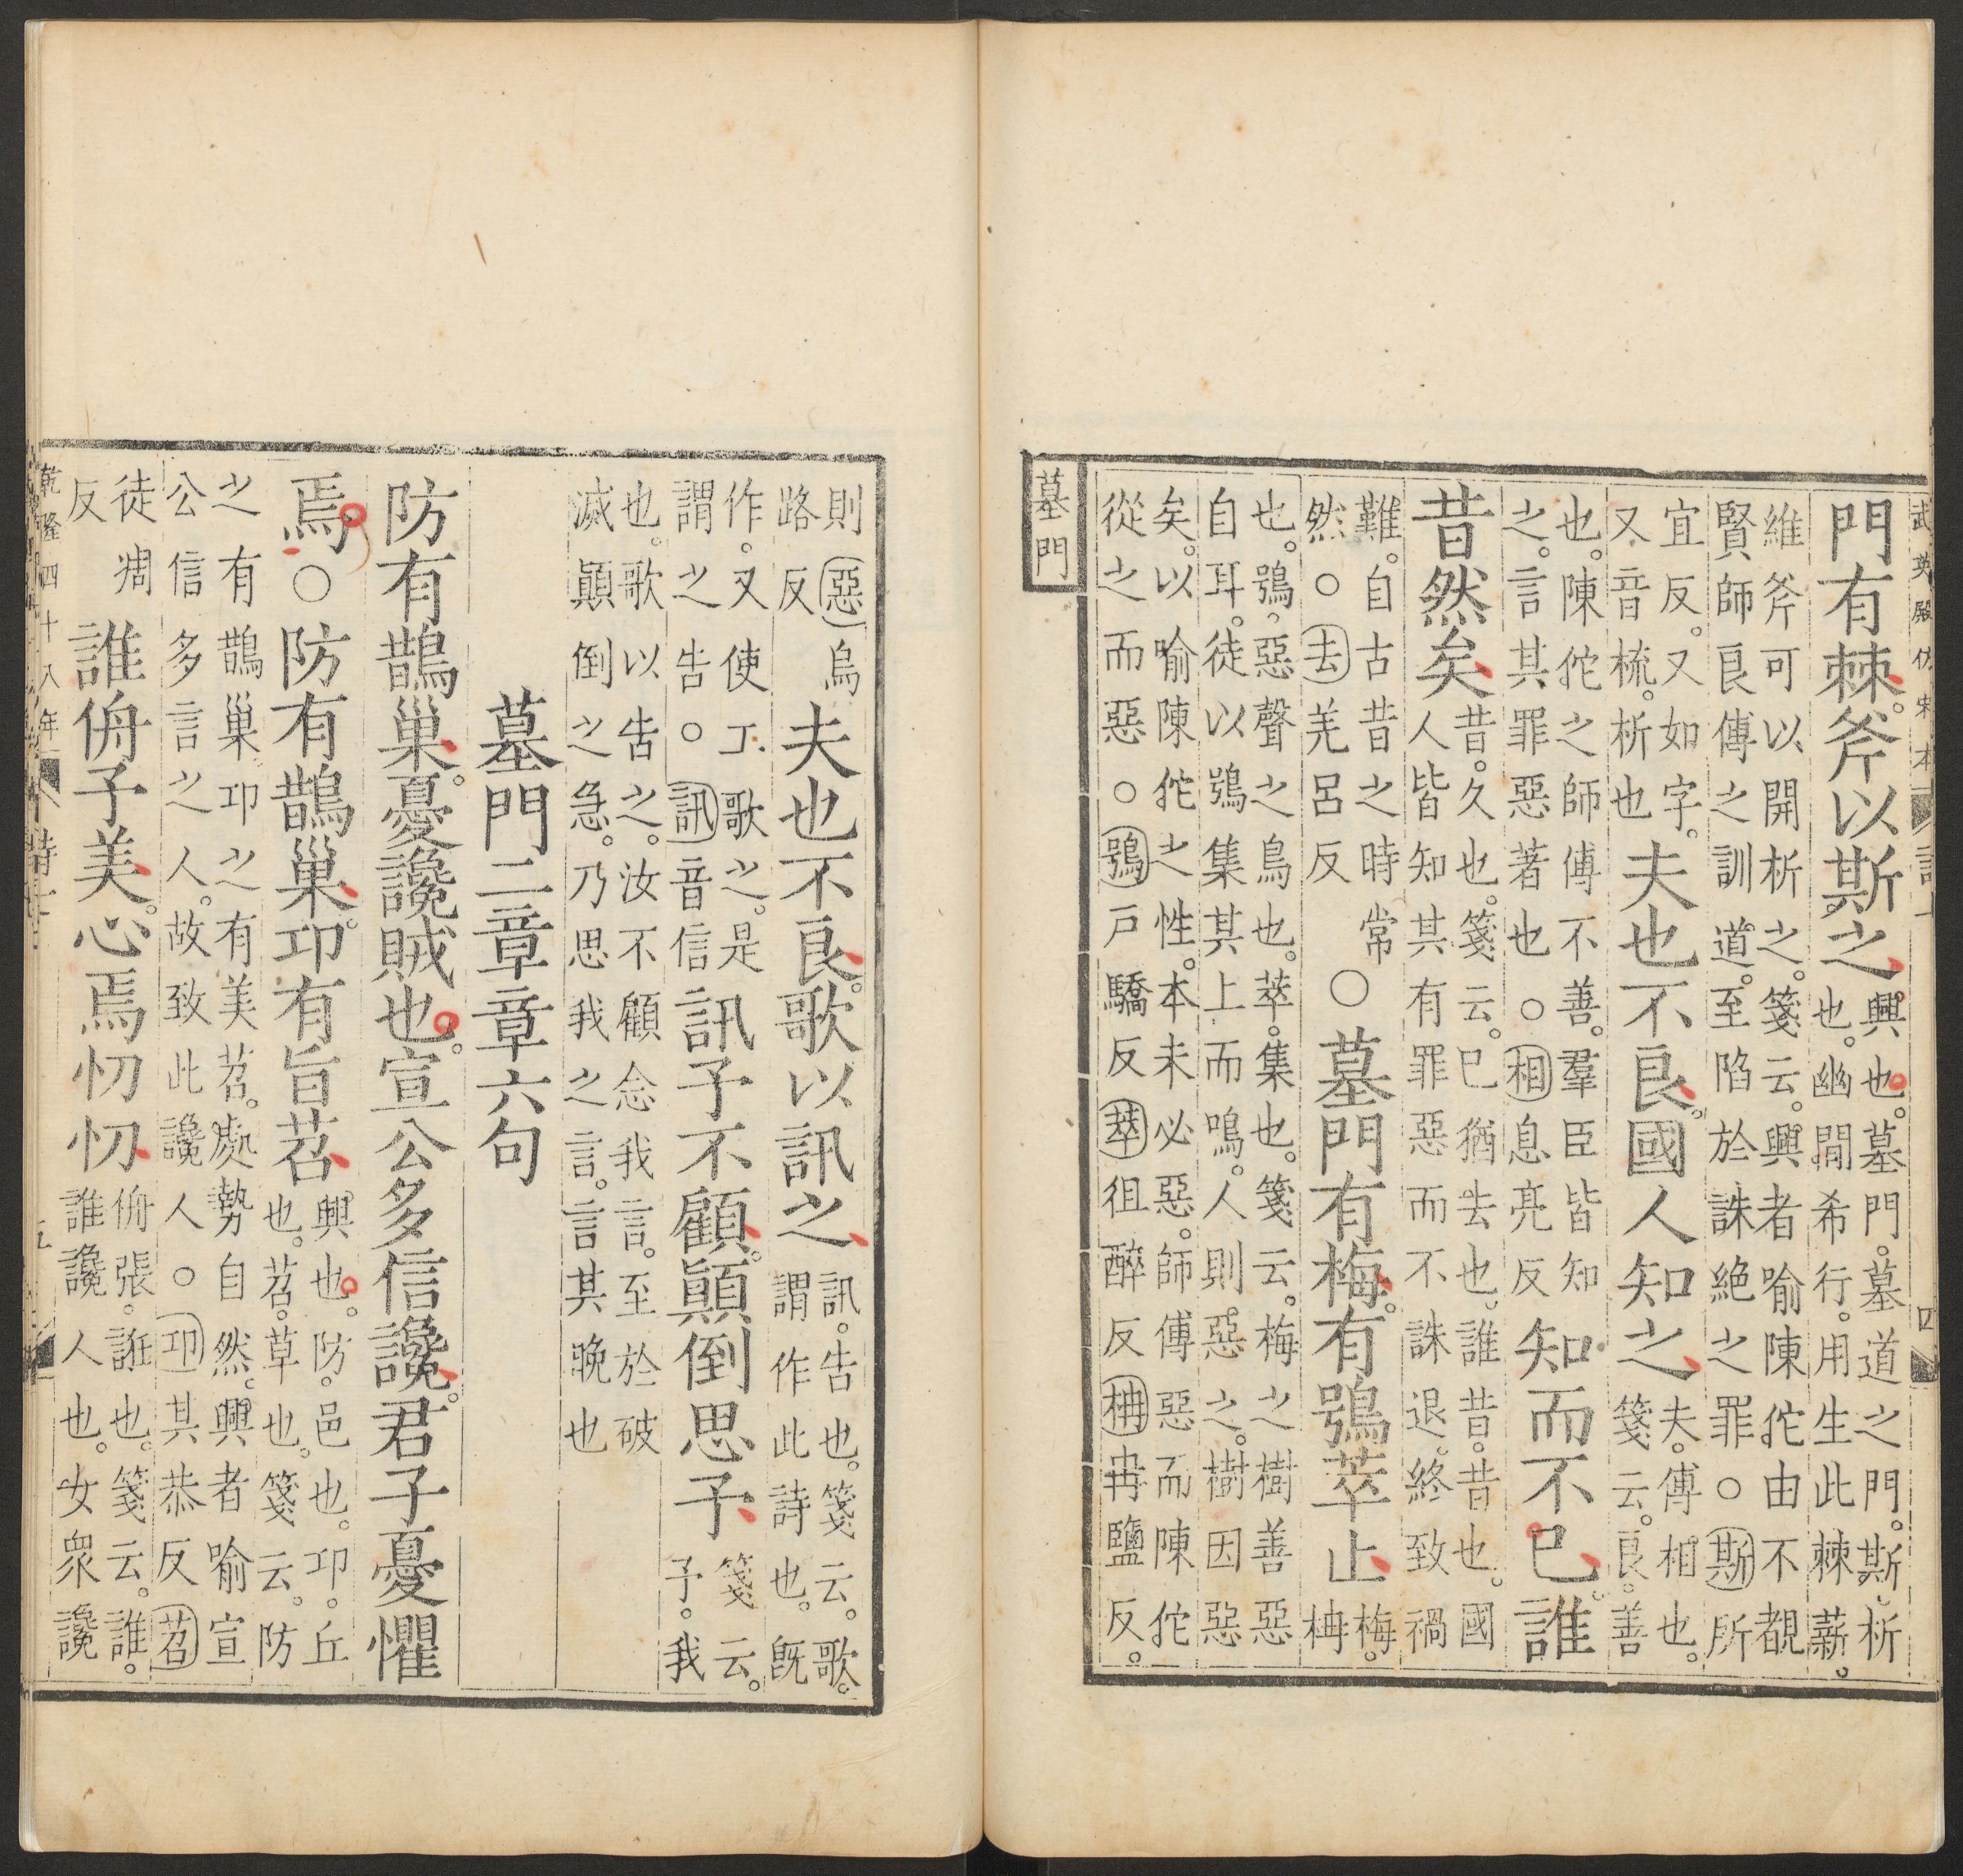 武英殿仿宋本
詩
四
門有棘。斧以斯之。興也。墓門。墓道之門。斯。析
也。幽閒希行。用生此棘薪。
維斧可以開析之。箋云。興者喻陳佗由不覩
賢師良傅之訓道。至陷於誅絕之罪。○斯所
宜反。又如字。
又音梳。析也
夫也不良。國人知之。夫。傅相也。
箋云。良。善
也。陳佗之師傅不善。羣臣皆知
之。言其罪惡著也○相息亮反
知而不已。誰
昔然矣。昔。久也。箋云。已猶去也。誰昔。昔也。國
人皆知其有罪惡而不誅退。終致禍
難。自古昔之時常
然。○去羌呂反
○墓門有梅。有鴞萃止。梅。
柟
也。鴞。惡聲之鳥也。萃。集也。箋云。梅之樹善惡
自耳。徒以鴞集其上而鳴。人則惡之。樹因惡
矣。以喻陳佗之性。本未必惡。師傅惡而陳佗
從之而惡。○鴞戶驕反萃徂醉反柟冉鹽反。
墓門
則惡烏
路反
夫也不良。歌以訊之。訊。告也。箋云。歌。
謂作此詩也。既
作。又使工歌之。是
謂之告。○訊音信
訊予不顧。顛倒思予。箋云。
予。我
也。歌以告之。汝不顧念我言。至於破
滅顛倒之急。乃思我之言。言其晚也
墓門二章章六句
防有鵲巢。憂讒賊也。宣公多信讒。君子憂懼
焉。○防有鵲巢。邛有旨苕。興也。防。邑也。邛。丘
也。苕。草也。箋云。防
之有鵲巢邛之有美苕。處勢自然。興者喻宣
公信多言之人。故致此讒人。○邛其恭反苕
徒凋
反
誰侜予美。心焉忉忉。侜張。誑也。箋云。誰。
誰讒人也。女衆讒
乾隆四十八年
詩
五